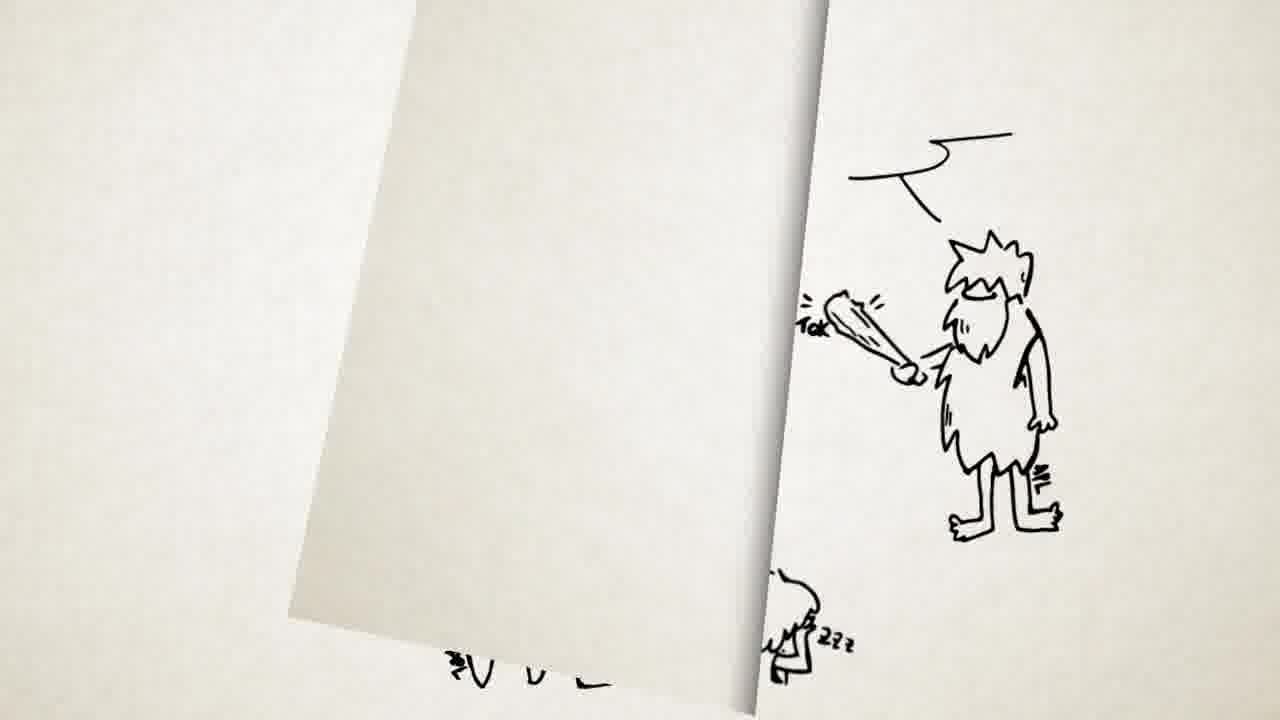 Tok
zzz